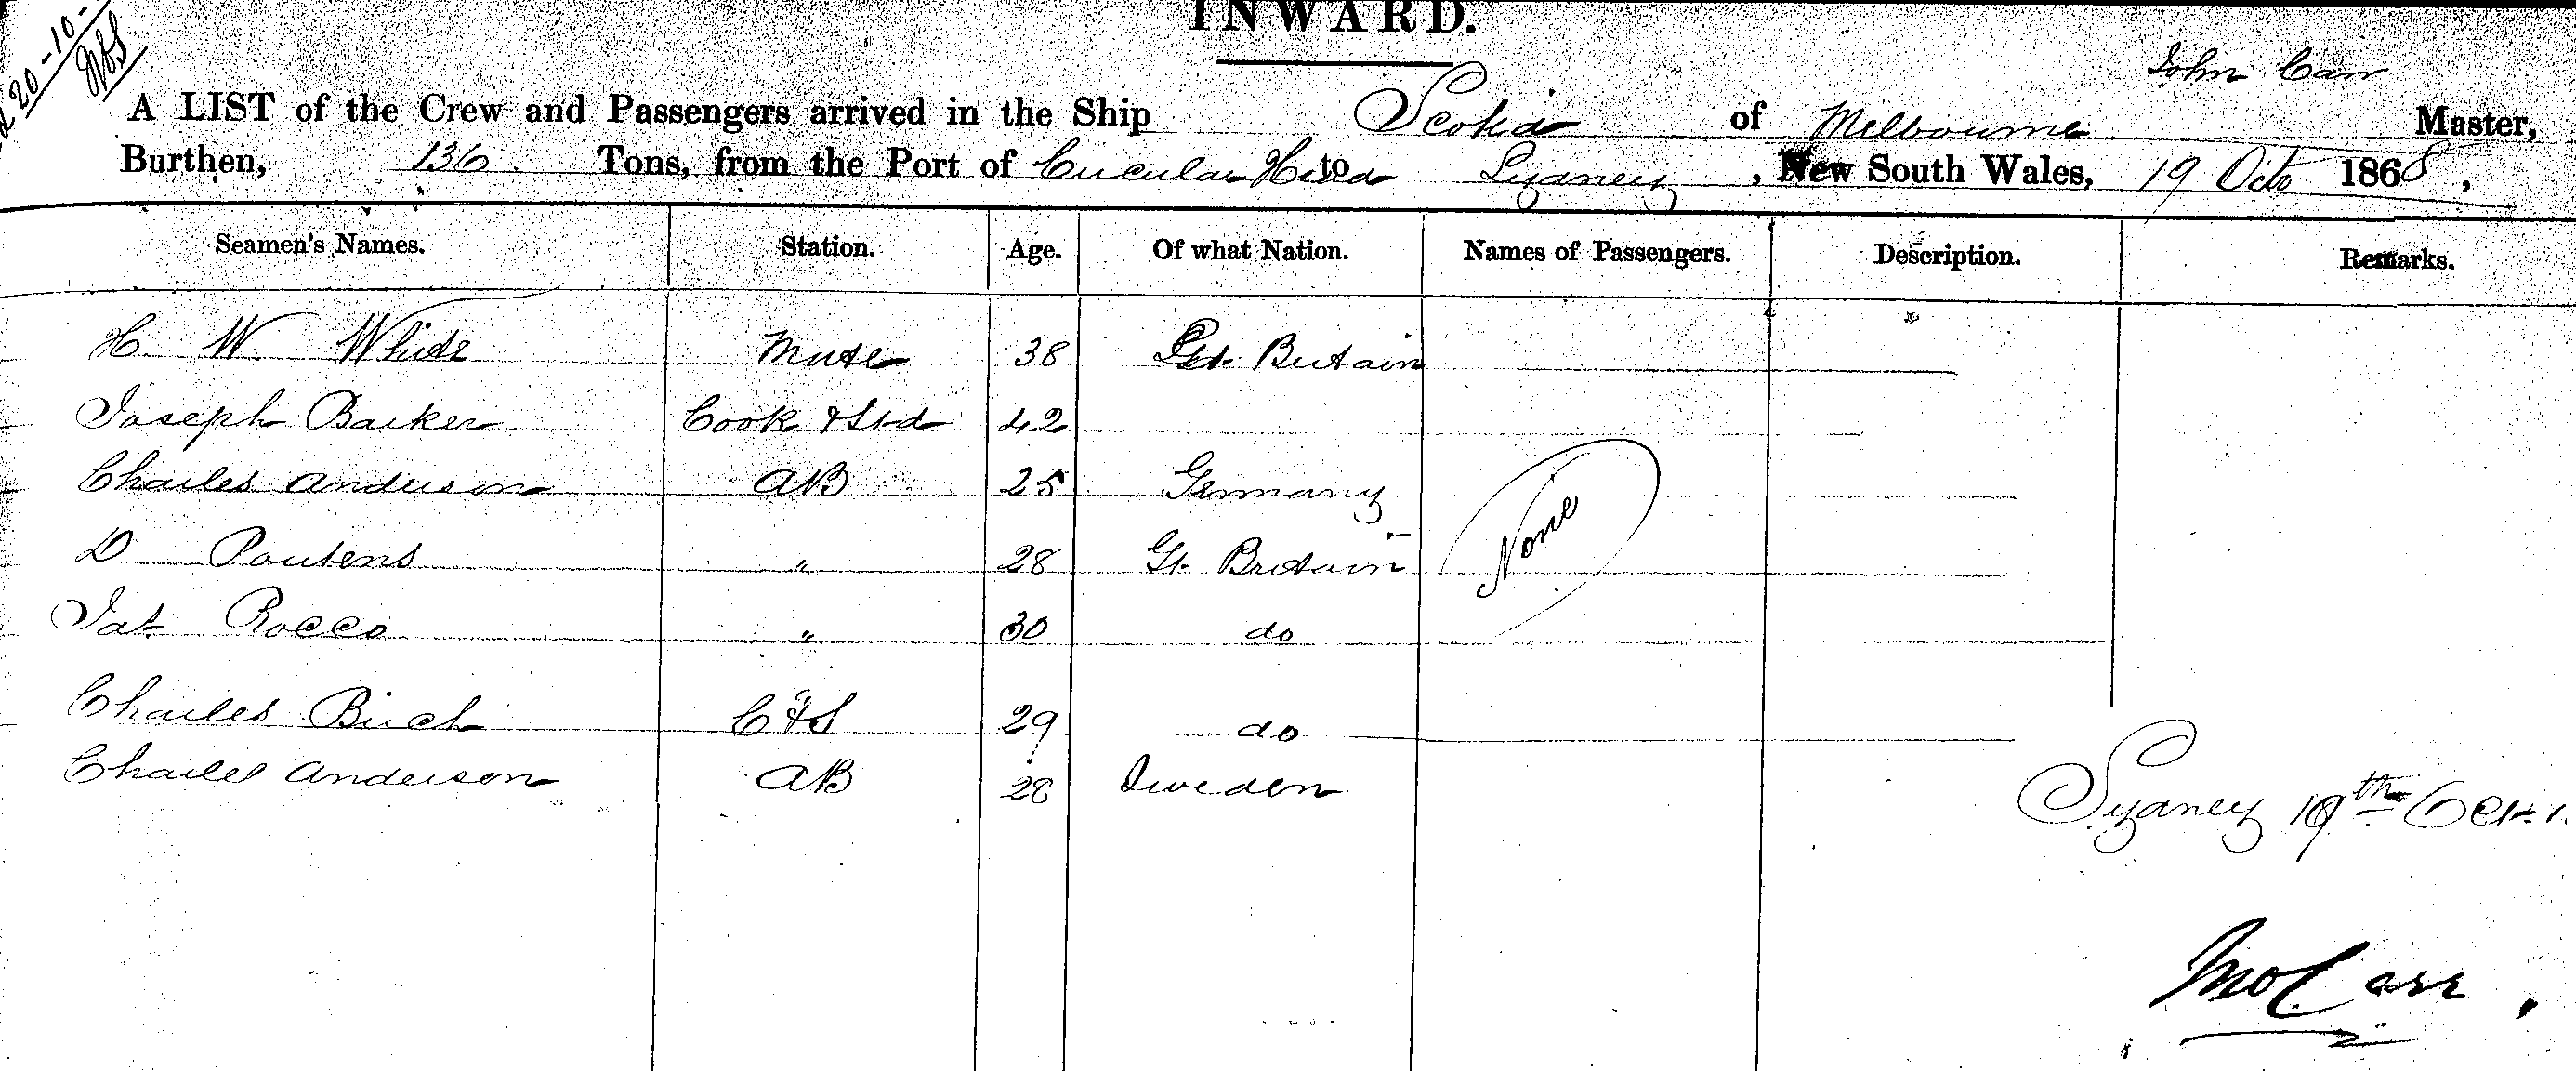 20-10-
INWARD.
John Carr
A LIST of the Crew and Passengers arrived in the Ship Scotia of Melbourne Master,
Burthen, 136 Tons, from the Port of Circular Head to Sydney, New South Wales, 19 Octo 1868,
Seamen's Names. Station. Age. Of what Nation. Names of Passengers. Description. Remarks.
H. W. White Mate 38 Gt. Britain
Joseph Barker Cook & Std 42
Charles Anderson AB 25 Germany
D " 28 Gt. Britain None
Jas. Rocco " 30 do
Charles Birch C & S 29 do
Charles Anderson AB 28 Sweden
Sydney 19th Oct.
Jno Carr